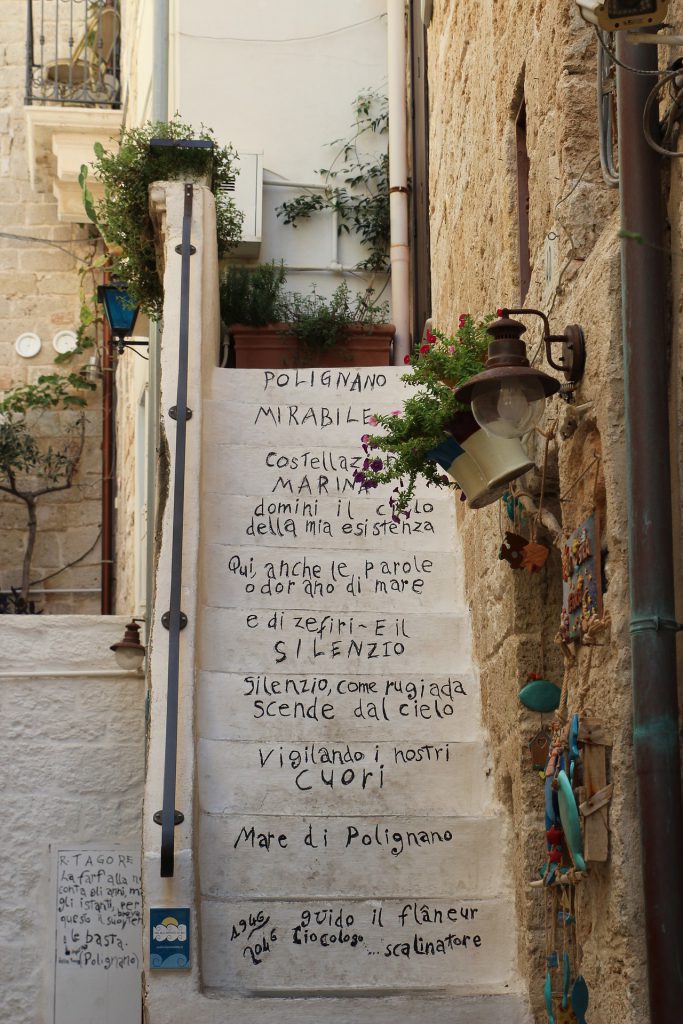 POLIGNANO
MIRABILE
Costellaz
MARINA
domini il cielo
della mia esistenza
Qui, anche le parole
odorano di mare
e di zefiri - E il
SILENZIO
Silenzio, come rugiada
scende dal cielo
Vigilando i nostri
CUORI
Mare di Polignano
1946
2046
guido il flâneur
...scalinatore
R. TAGORE
La farfalla n
conta gli anni, m
gli istanti, per
questo il suo
breve
e le basta.
(Polignano)